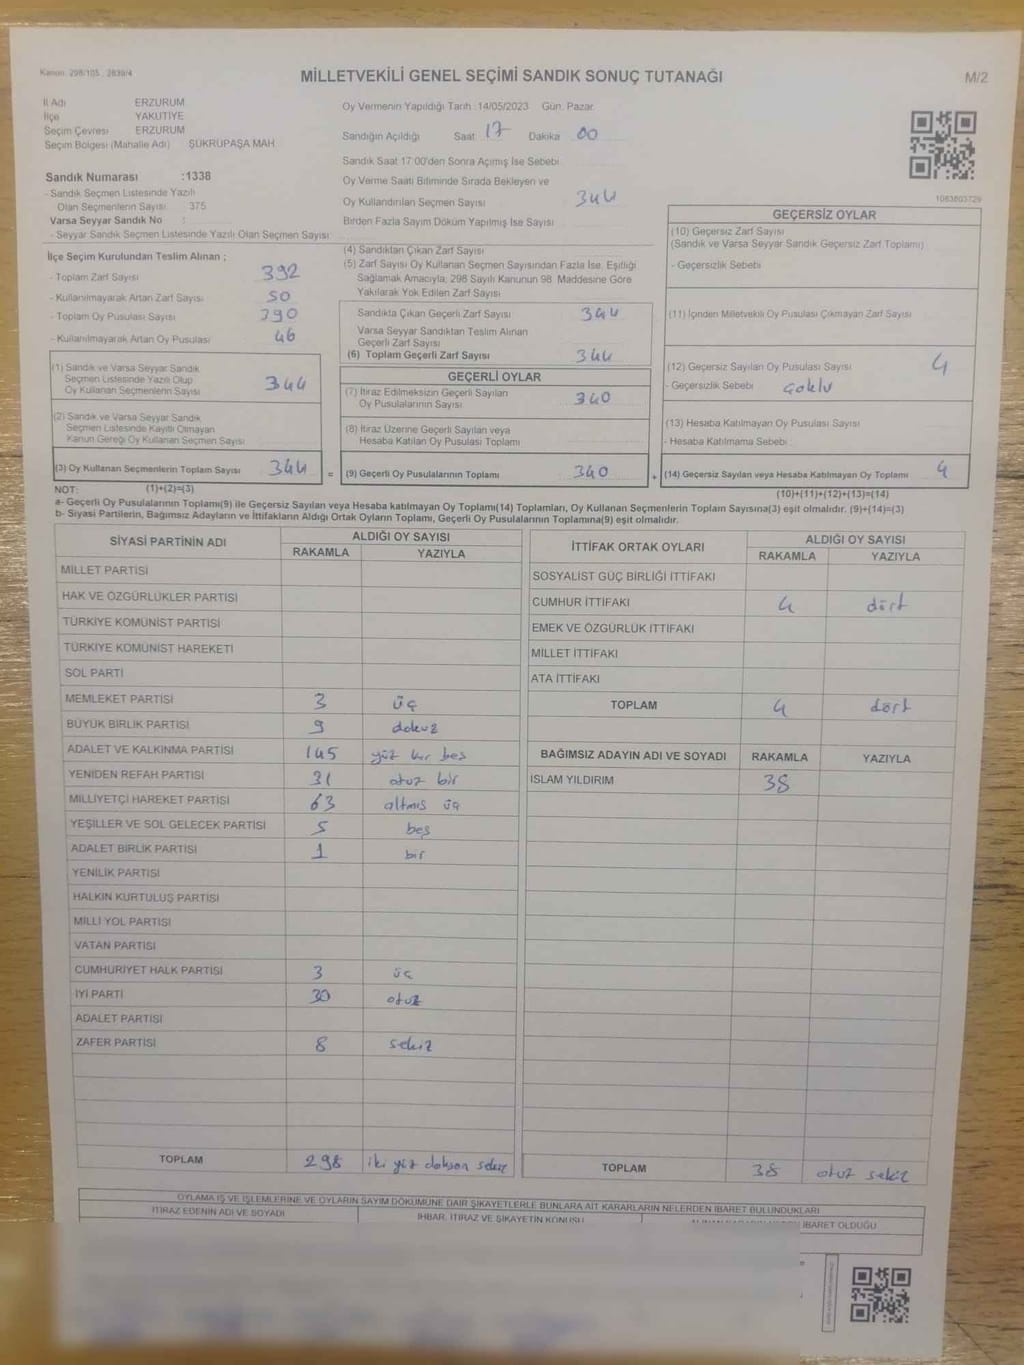 Kanun: 298/105 , 2839/4
MİLLETVEKİLİ GENEL SEÇİMİ SANDIK SONUÇ TUTANAĞI
M/2
İl Adı ERZURUM
İlçe YAKUTİYE
Seçim Çevresi ERZURUM
Seçim Bölgesi (Mahalle Adı) ŞÜKRÜPAŞA MAH.
Sandık Numarası :1338
- Sandık Seçmen Listesinde Yazılı
Olan Seçmenlerin Sayısı 375
Varsa Seyyar Sandık No :
- Seyyar Sandık Seçmen Listesinde Yazılı Olan Seçmen Sayısı
İlçe Seçim Kurulundan Teslim Alınan ;
- Toplam Zarf Sayısı 392
- Kullanılmayarak Artan Zarf Sayısı 50
- Toplam Oy Pusulası Sayısı 390
- Kullanılmayarak Artan Oy Pusulası 46
(1) Sandık ve Varsa Seyyar Sandık
Seçmen Listesinde Yazılı Olup
Oy Kullanan Seçmenlerin Sayısı 344
(2) Sandık ve Varsa Seyyar Sandık
Seçmen Listesinde Kayıtlı Olmayan
Kanun Gereği Oy Kullanan Seçmen Sayısı
(3) Oy Kullanan Seçmenlerin Toplam Sayısı 344 =
NOT: (1)+(2)=(3)
Oy Vermenin Yapıldığı Tarih :14/05/2023 Gün: Pazar
Sandığın Açıldığı Saat: 17 Dakika 00
Sandık Saat 17:00'den Sonra Açılmış İse Sebebi
Oy Verme Saati Bitiminde Sırada Bekleyen ve
Oy Kullandırılan Seçmen Sayısı 344
Birden Fazla Sayım Döküm Yapılmış İse Sayısı
(4) Sandıktan Çıkan Zarf Sayısı
(5) Zarf Sayısı Oy Kullanan Seçmen Sayısından Fazla İse, Eşitliği
Sağlamak Amacıyla, 298 Sayılı Kanunun 98. Maddesine Göre
Yakılarak Yok Edilen Zarf Sayısı
Sandıkta Çıkan Geçerli Zarf Sayısı 344
Varsa Seyyar Sandıktan Teslim Alınan
Geçerli Zarf Sayısı
(6) Toplam Geçerli Zarf Sayısı 344
GEÇERLİ OYLAR
(7) İtiraz Edilmeksizin Geçerli Sayılan
Oy Pusulalarının Sayısı 340
(8) İtiraz Üzerine Geçerli Sayılan veya
Hesaba Katılan Oy Pusulası Toplamı
(9) Geçerli Oy Pusulalarının Toplamı 340 +
1083803729
GEÇERSİZ OYLAR
(10) Geçersiz Zarf Sayısı
(Sandık ve Varsa Seyyar Sandık Geçersiz Zarf Toplamı)
- Geçersizlik Sebebi
(11) İçinden Milletvekili Oy Pusulası Çıkmayan Zarf Sayısı
(12) Geçersiz Sayılan Oy Pusulası Sayısı 4
- Geçersizlik Sebebi çoklu
(13) Hesaba Katılmayan Oy Pusulası Sayısı
- Hesaba Katılmama Sebebi :
(14) Geçersiz Sayılan veya Hesaba Katılmayan Oy Toplamı 4
(10)+(11)+(12)+(13)=(14)
a- Geçerli Oy Pusulalarının Toplamı(9) ile Geçersiz Sayılan veya Hesaba katılmayan Oy Toplamı(14) Toplamları, Oy Kullanan Seçmenlerin Toplam Sayısına(3) eşit olmalıdır. (9)+(14)=(3)
b- Siyasi Partilerin, Bağımsız Adayların ve İttifakların Aldığı Ortak Oyların Toplamı, Geçerli Oy Pusulalarının Toplamına(9) eşit olmalıdır.
SİYASİ PARTİNİN ADI ALDIĞI OY SAYISI
RAKAMLA YAZIYLA
MİLLET PARTİSİ
HAK VE ÖZGÜRLÜKLER PARTİSİ
TÜRKİYE KOMÜNİST PARTİSİ
TÜRKİYE KOMÜNİST HAREKETİ
SOL PARTİ
MEMLEKET PARTİSİ 3 üç
BÜYÜK BİRLİK PARTİSİ 9 dokuz
ADALET VE KALKINMA PARTİSİ 145 yüz kır beş
YENİDEN REFAH PARTİSİ 31 otuz bir
MİLLİYETÇİ HAREKET PARTİSİ 63 altmış üç
YEŞİLLER VE SOL GELECEK PARTİSİ 5 beş
ADALET BİRLİK PARTİSİ 1 bir
YENİLİK PARTİSİ
HALKIN KURTULUŞ PARTİSİ
MİLLİ YOL PARTİSİ
VATAN PARTİSİ
CUMHURİYET HALK PARTİSİ 3 üç
İYİ PARTİ 30 otuz
ADALET PARTİSİ
ZAFER PARTİSİ 8 sekiz
TOPLAM 298 iki yüz doksan sekiz
İTTİFAK ORTAK OYLARI ALDIĞI OY SAYISI
RAKAMLA YAZIYLA
SOSYALİST GÜÇ BİRLİĞİ İTTİFAKI
CUMHUR İTTİFAKI 4 dört
EMEK VE ÖZGÜRLÜK İTTİFAKI
MİLLET İTTİFAKI
ATA İTTİFAKI
TOPLAM 4 dört
BAĞIMSIZ ADAYIN ADI VE SOYADI RAKAMLA YAZIYLA
İSLAM YILDIRIM 38
TOPLAM 38 otuz sekiz
OYLAMA İŞ VE İŞLEMLERİNE VE OYLARIN SAYIM DÖKÜMÜNE DAİR ŞİKAYETLERLE BUNLARA AİT KARARLARIN NELERDEN İBARET BULUNDUKLARI
İTİRAZ EDENİN ADI VE SOYADI İHBAR, İTİRAZ VE ŞİKAYETİN KONUSU İBARET OLDUĞU